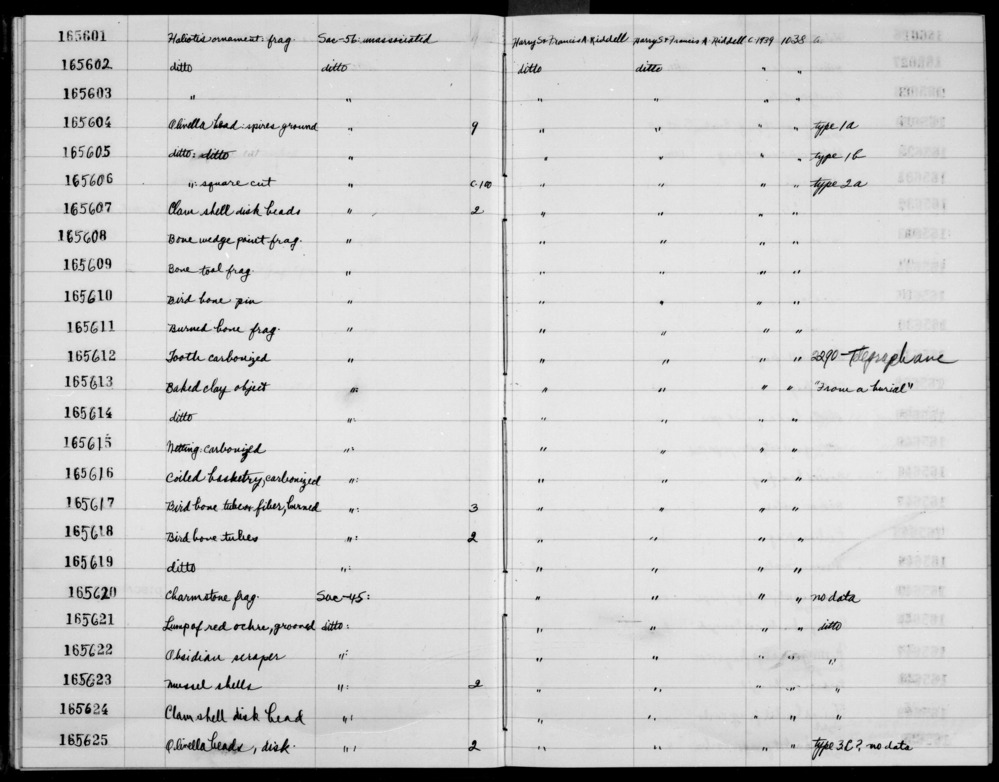 165601 Haliotis ornament: frag. Sac-56: unassociated Harry S & Francis A Riddell Harry S & Francis A. Riddell C-1939 1038
165602 ditto ditto ditto ditto " "
165603 " " " " " "
165604 Olivella bead: spires ground " 9 " " " " type 1a
165605 ditto: ditto " " " " " type 1b
165606 ": square cut " C-100 " " " " type 2a
165607 Clam shell disk beads " 2 " " " "
165608 Bone wedge point frag. " " " " "
165609 Bone tool frag. " " " " "
165610 Bird bone pin " " " " "
165611 Burned bone frag. " " " " "
165612 Tooth carbonized " " " " " 2290-
165613 Baked clay object ": " " " " "From a burial"
165614 ditto ": " " " "
165615 Netting: carbonized ": " " " "
165616 Coiled basketry, carbonized ": " " " "
165617 Bird bone tubes fiber, burned ": 3 " " " "
165618 Bird bone tubes ": 2 " " " "
165619 ditto ": " " " "
165620 Charmstone frag. Sac-45: " " " " no data
165621 Lump of red ochre, grooned ditto: " " " " ditto
165622 Obsidian scraper ": " " " " "
165623 Mussel shells ": 2 " " " " "
165624 Clam shell disk bead ": " " " " "
165625 Olivella beads, disk. ": 2 " " " " type 3C?, no data